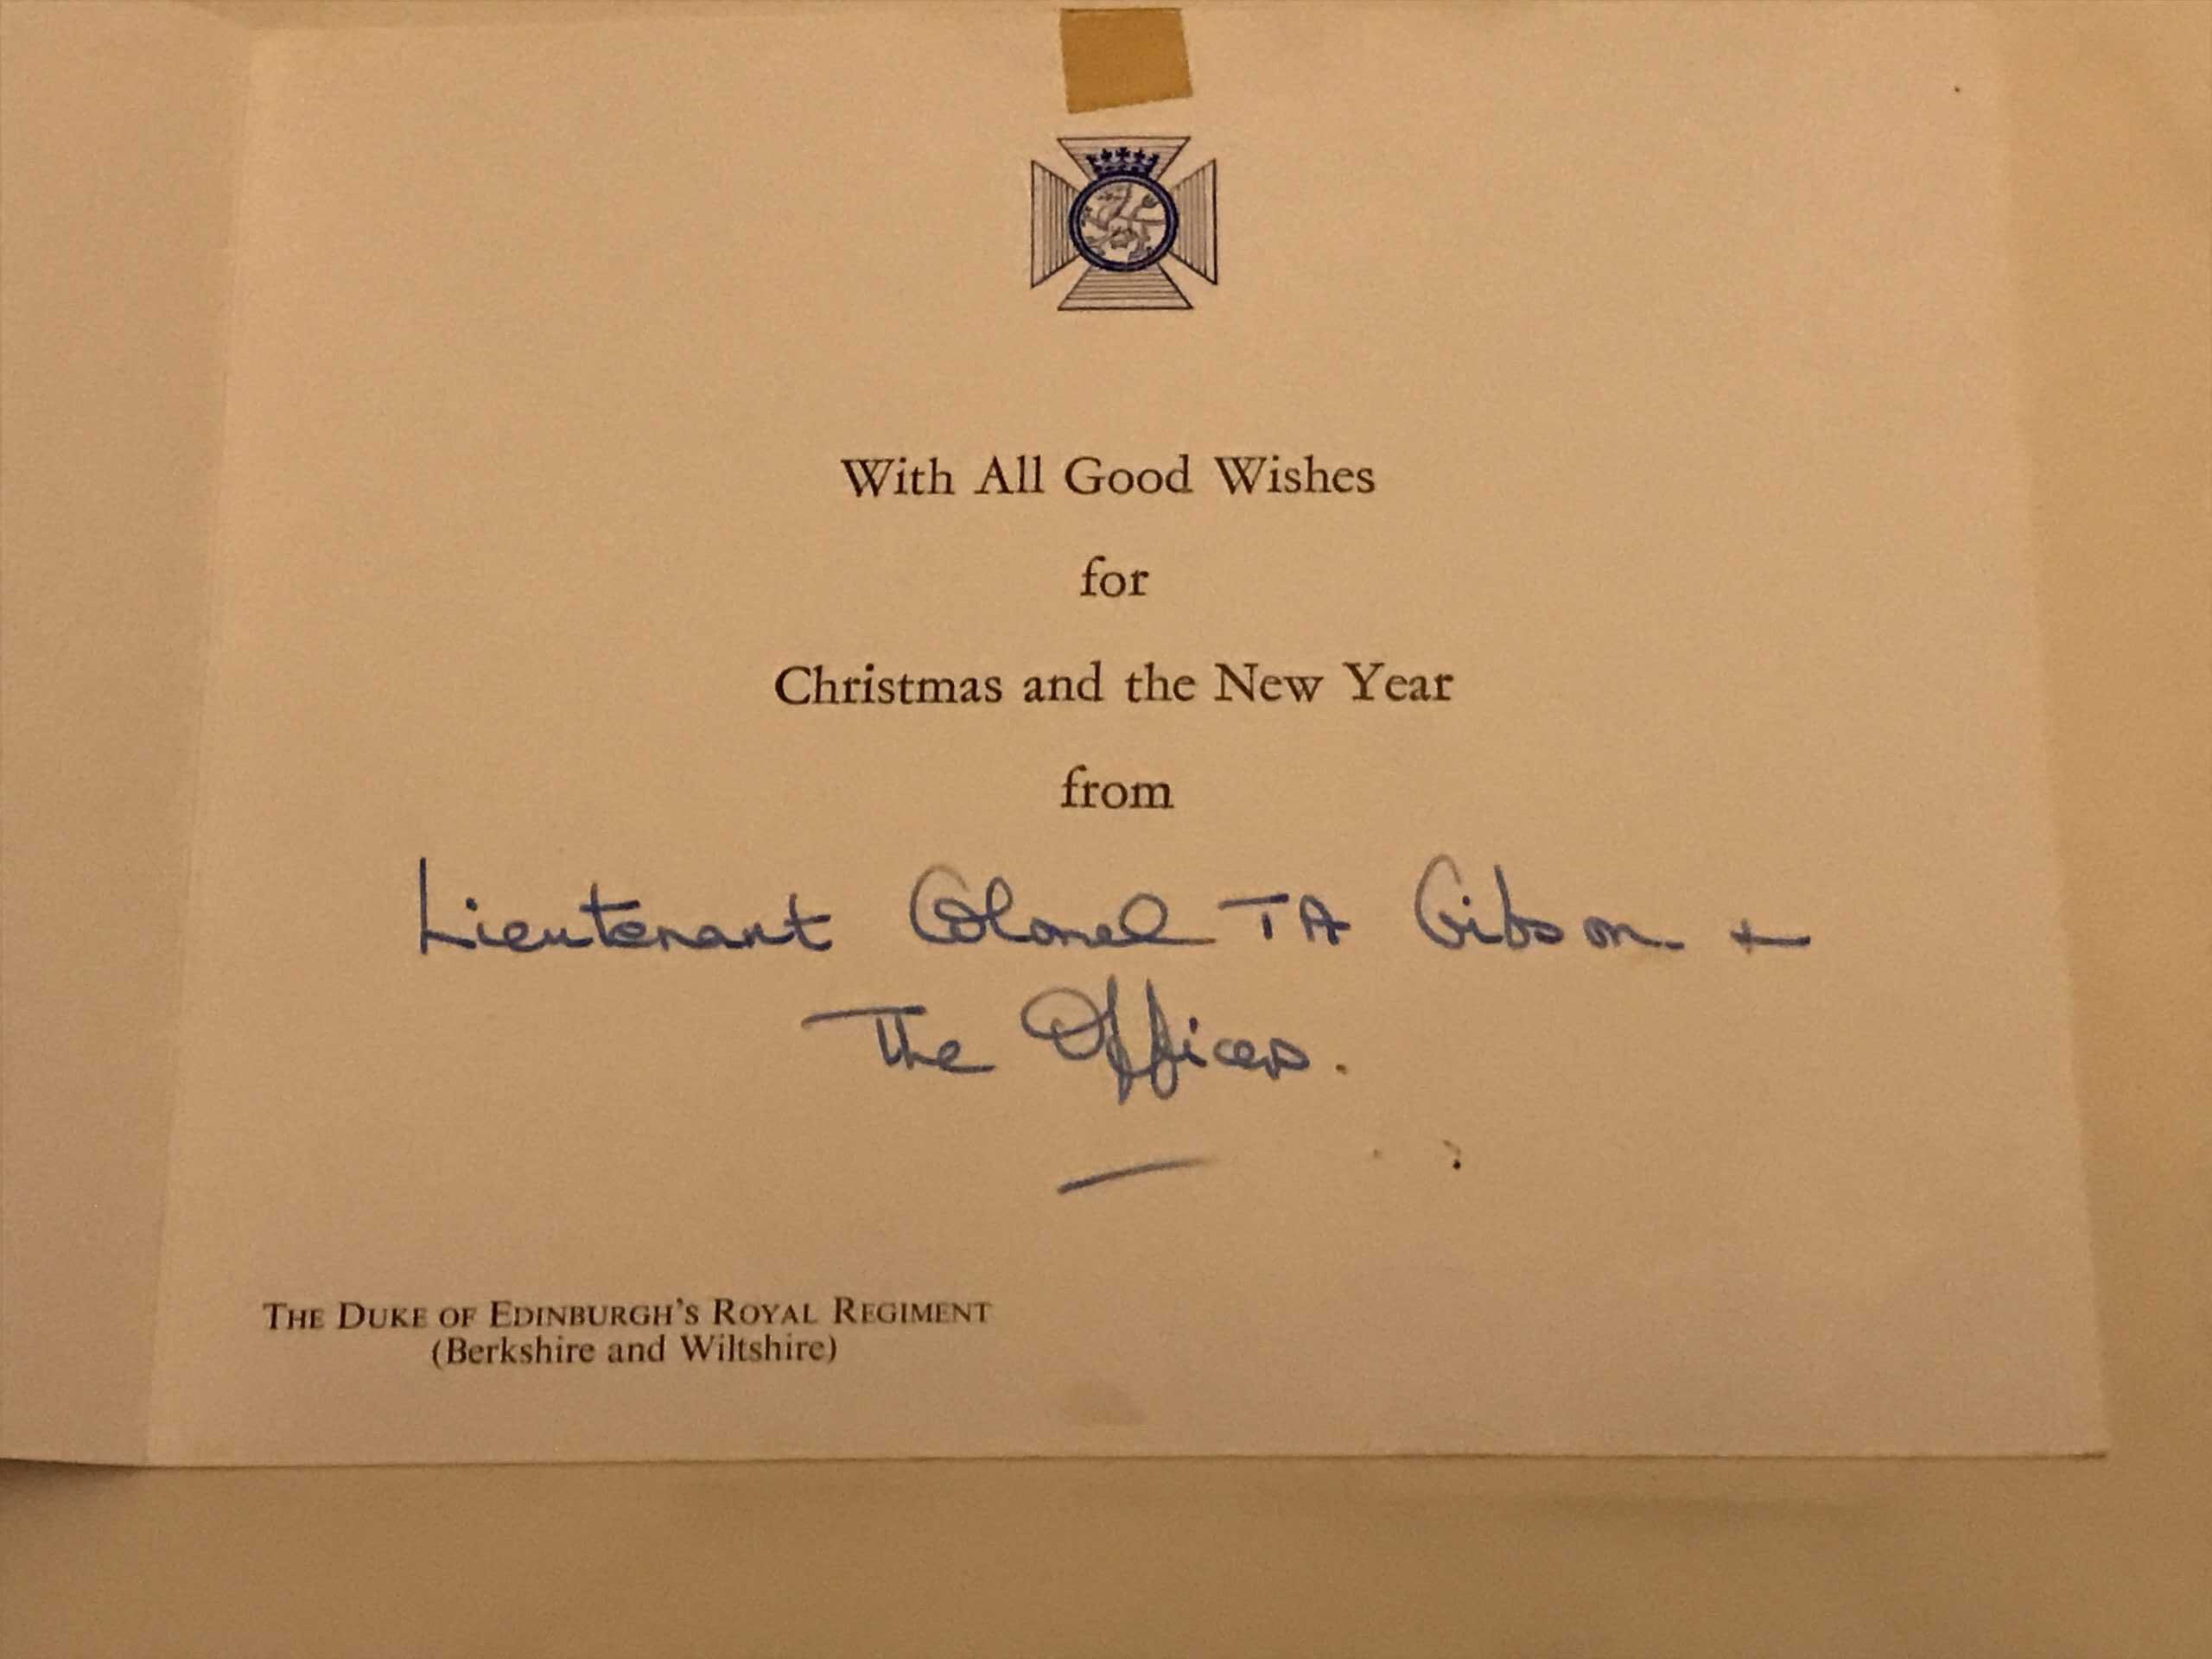 With All Good Wishes
for
Christmas and the New Year
from
Lieutenant Colonel TA Gibson +
The Officers.
THE DUKE OF EDINBURGH'S ROYAL REGIMENT
(Berkshire and Wiltshire)